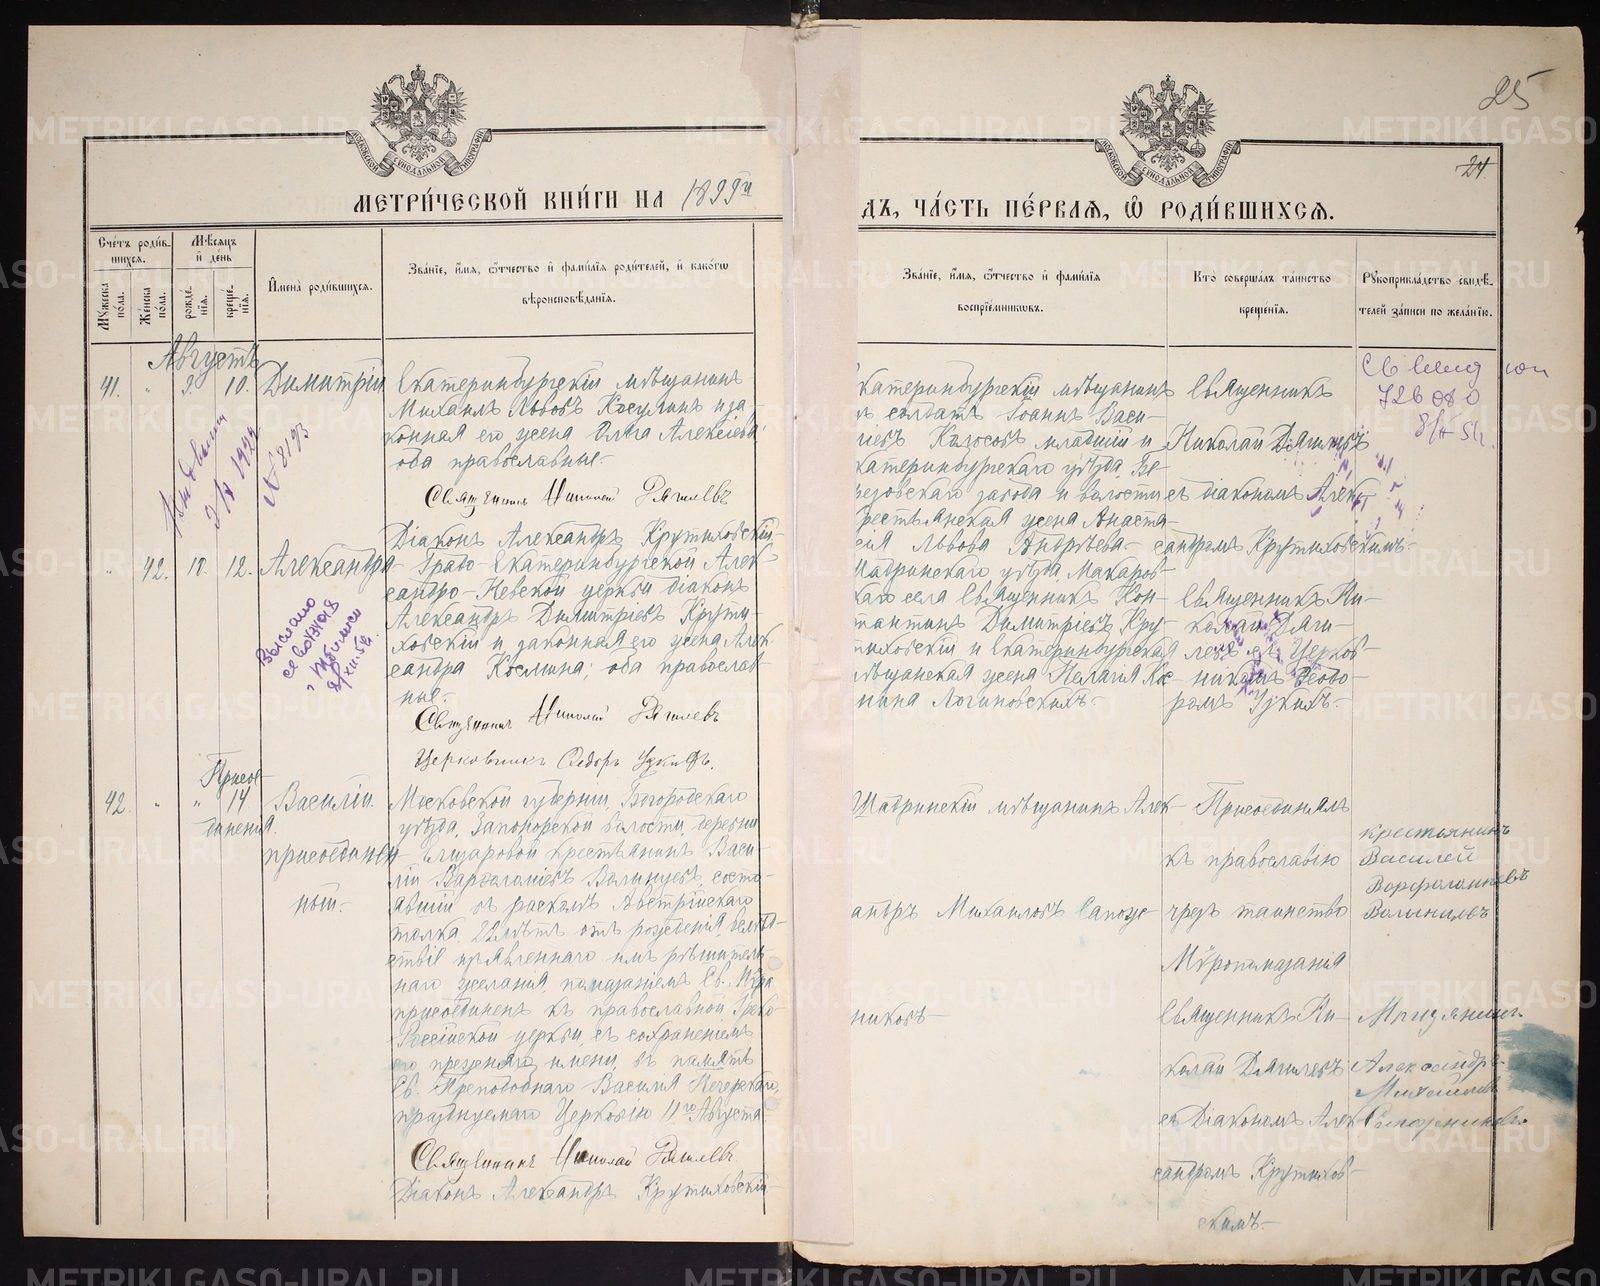 25
24
МЕТРИ́ЧЕСКОЙ КНИ́ГИ НА 1899й
ДЪ, ЧА́СТЬ ПЕ́РВАЯ, Ѡ РОДИ́ВШИХСЯ.
Сче́тъ роди́в-
шихся.
Му́жеска по́ла.
Же́нска по́ла.
Мѣ́сяцъ
и҆ де́нь
рожде́-
нїя.
креще́-
нїя.
И҆мена̀ роди́вшихся.
Зва́нїе, и҆́мя, ѻ҆́тчество и҆ фами́лїя роди́телей, и҆ како́гѡ
вѣроисповѣ́данїя.
Зва́нїе, и҆́мя, ѻ҆́тчество и҆ фами́лїя
воспрїе́мникѡвъ.
Кто̀ соверша́лъ та́инство
креще́нїя.
Рꙋкоприкла́дство свидѣ́-
телей за́писи по жела́нїю.
Августъ
41. " 9. 10. Димитрій
Екатеринбургскій мѣщанинъ
Михаилъ Львовъ Косулинъ и за-
конная его жена Ольга Алексіева
оба православные.
Священникъ Николай Дягилевъ
Діаконъ Александръ Крутиховскій
катеринбургскій мѣщанинъ
солдатъ Іоаннъ Васи-
младшій и
катеринбургскаго уѣзда Бе-
резовскаго завода и волости
крестьянская жена Анаста-
сія Львова Андрѣева
Священникъ
Николай Дягилевъ
съ діакономъ Алек-
сандромъ Крутиховскимъ.
2/IX 1922
№ 8193
" 42. 10. 12. Александра
Градо-Екатеринбургской Алек-
сандро-Невской церкви діаконъ
Александръ Димитріевъ Крути-
ховскій и законная его жена Алек-
сандра Космина; оба православ-
ные.
Священникъ Николай Дягилевъ
Церковникъ Ѳедоръ
Шадринскаго уѣзда, Макаров-
скаго села Священникъ Кон-
стантинъ Димитріевъ Кру-
тиховскій и Екатеринбургская
мѣщанская жена Пелагія Кос-
мина Логиновскихъ.
Священникъ Ни-
колай Дяги-
левъ съ Церков-
никомъ Ѳеодо-
ромъ
Выслано
Присое-
динения.
42. " " 14 Василій
присоединен-
ный.
Московской губерніи, Богородскаго
уѣзда, Запонорской волости, деревни
крестьянинъ Васи-
лій Варѳоломіевъ состо-
явшій въ расколѣ Австрійскаго
толка, 22 лѣтъ отъ рожденія, вслѣд-
ствіе изъявленнаго имъ рѣшитель-
наго желанія, помазаніемъ Св. Мѵра
присоединенъ къ православной Греко-
Россійской церкви, съ сохраненіемъ
его прежняго имени, въ память
Св. Преподобнаго Василія Печерскаго,
празднуемаго Церковію 11го Августа
Священникъ Николай Дягилевъ
Діаконъ Александръ Крутиховскій
Шадринскій мѣщанинъ Алек-
андръ Михаиловъ Сапож-
никовъ
Присоединялъ
къ православію
чрезъ таинство
Мѵропомазанія
Священникъ Ни-
колай Дягилевъ
съ Діакономъ Алек-
сандромъ Крутихов-
скимъ.
крестьянинъ
Василей
Мещанинъ
Александръ
Михайловъ
Сапожниковъ
METRIKI.GASO-URAL.RU